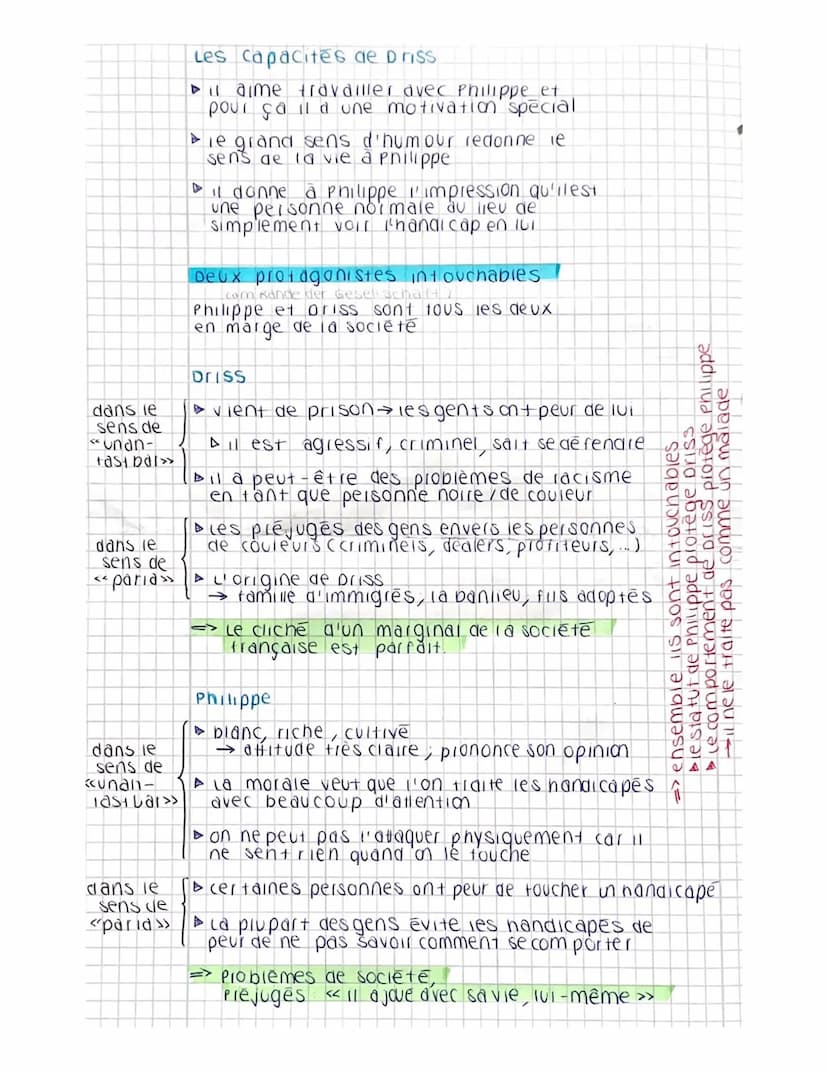 Les capacités de Driss
▷ il aime travailler avec Philippe et
pour ça il a une motivation spécial
▷ le grand sens d'humour redonne le
sens de la vie à Philippe
▷ il donne à Philippe l'impression qu'il est
une personne normale au lieu de
simplement voir l'handicap en lui
Deux protagonistes intouchables
(am Rande der Gesellschaft)
Philippe et Driss sont tous les deux
en marge de la société
Driss
dans le
sens de
«unan-
tastbar»
▷ vient de prison → les gents ont peur de lui
▷ il est agressif, criminel, sait se défendre
▷ il a peut-être des problèmes de racisme
en tant que personne noire / de couleur
dans le
sens de
«paria»
▷ Les préjugés des gens envers les personnes
de couleurs (criminels, dealers, profiteurs, ...)
▷ L'origine de Driss
→ famille d'immigrés, la banlieu, fils adoptés
=> Le cliché d'un marginal de la société
française est parfait.
Philippe
dans le
sens de
«unan-
tastbar»
▷ blanc, riche, cultivé
→ attitude très claire ; prononce son opinion
▷ La morale veut que l'on traite les handicapés
avec beaucoup d'attention
▷ on ne peut pas l'attaquer physiquement car il
ne sent rien quand on le touche
dans le
sens de
«paria»
▷ certaines personnes ont peur de toucher un handicapé
▷ La plupart des gens évite les handicapés de
peur de ne pas savoir comment se comporter
=> Problèmes de société,
Préjugés « il a joué avec sa vie, lui-même »
=> ensemble ils sont intouchables
▷ le statut de Philippe protège Driss
▷ Le comportement de Driss protège Philippe
→ il ne le traite pas comme un malade